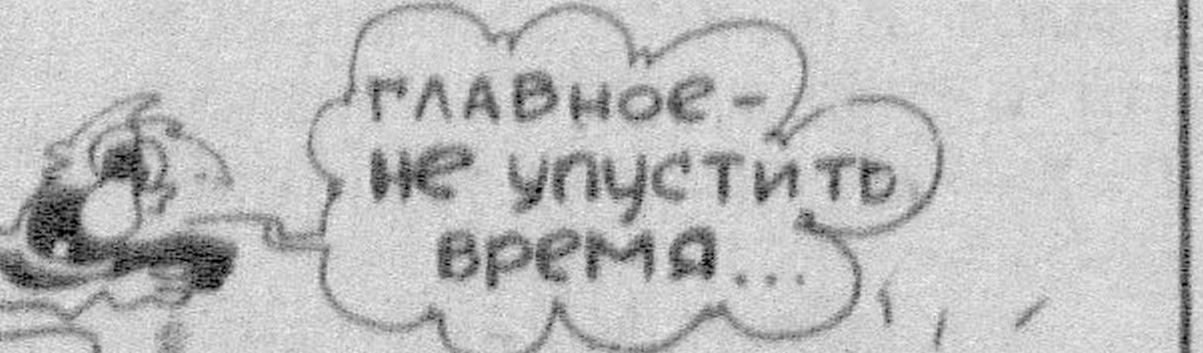 главное-
не упустить
время...